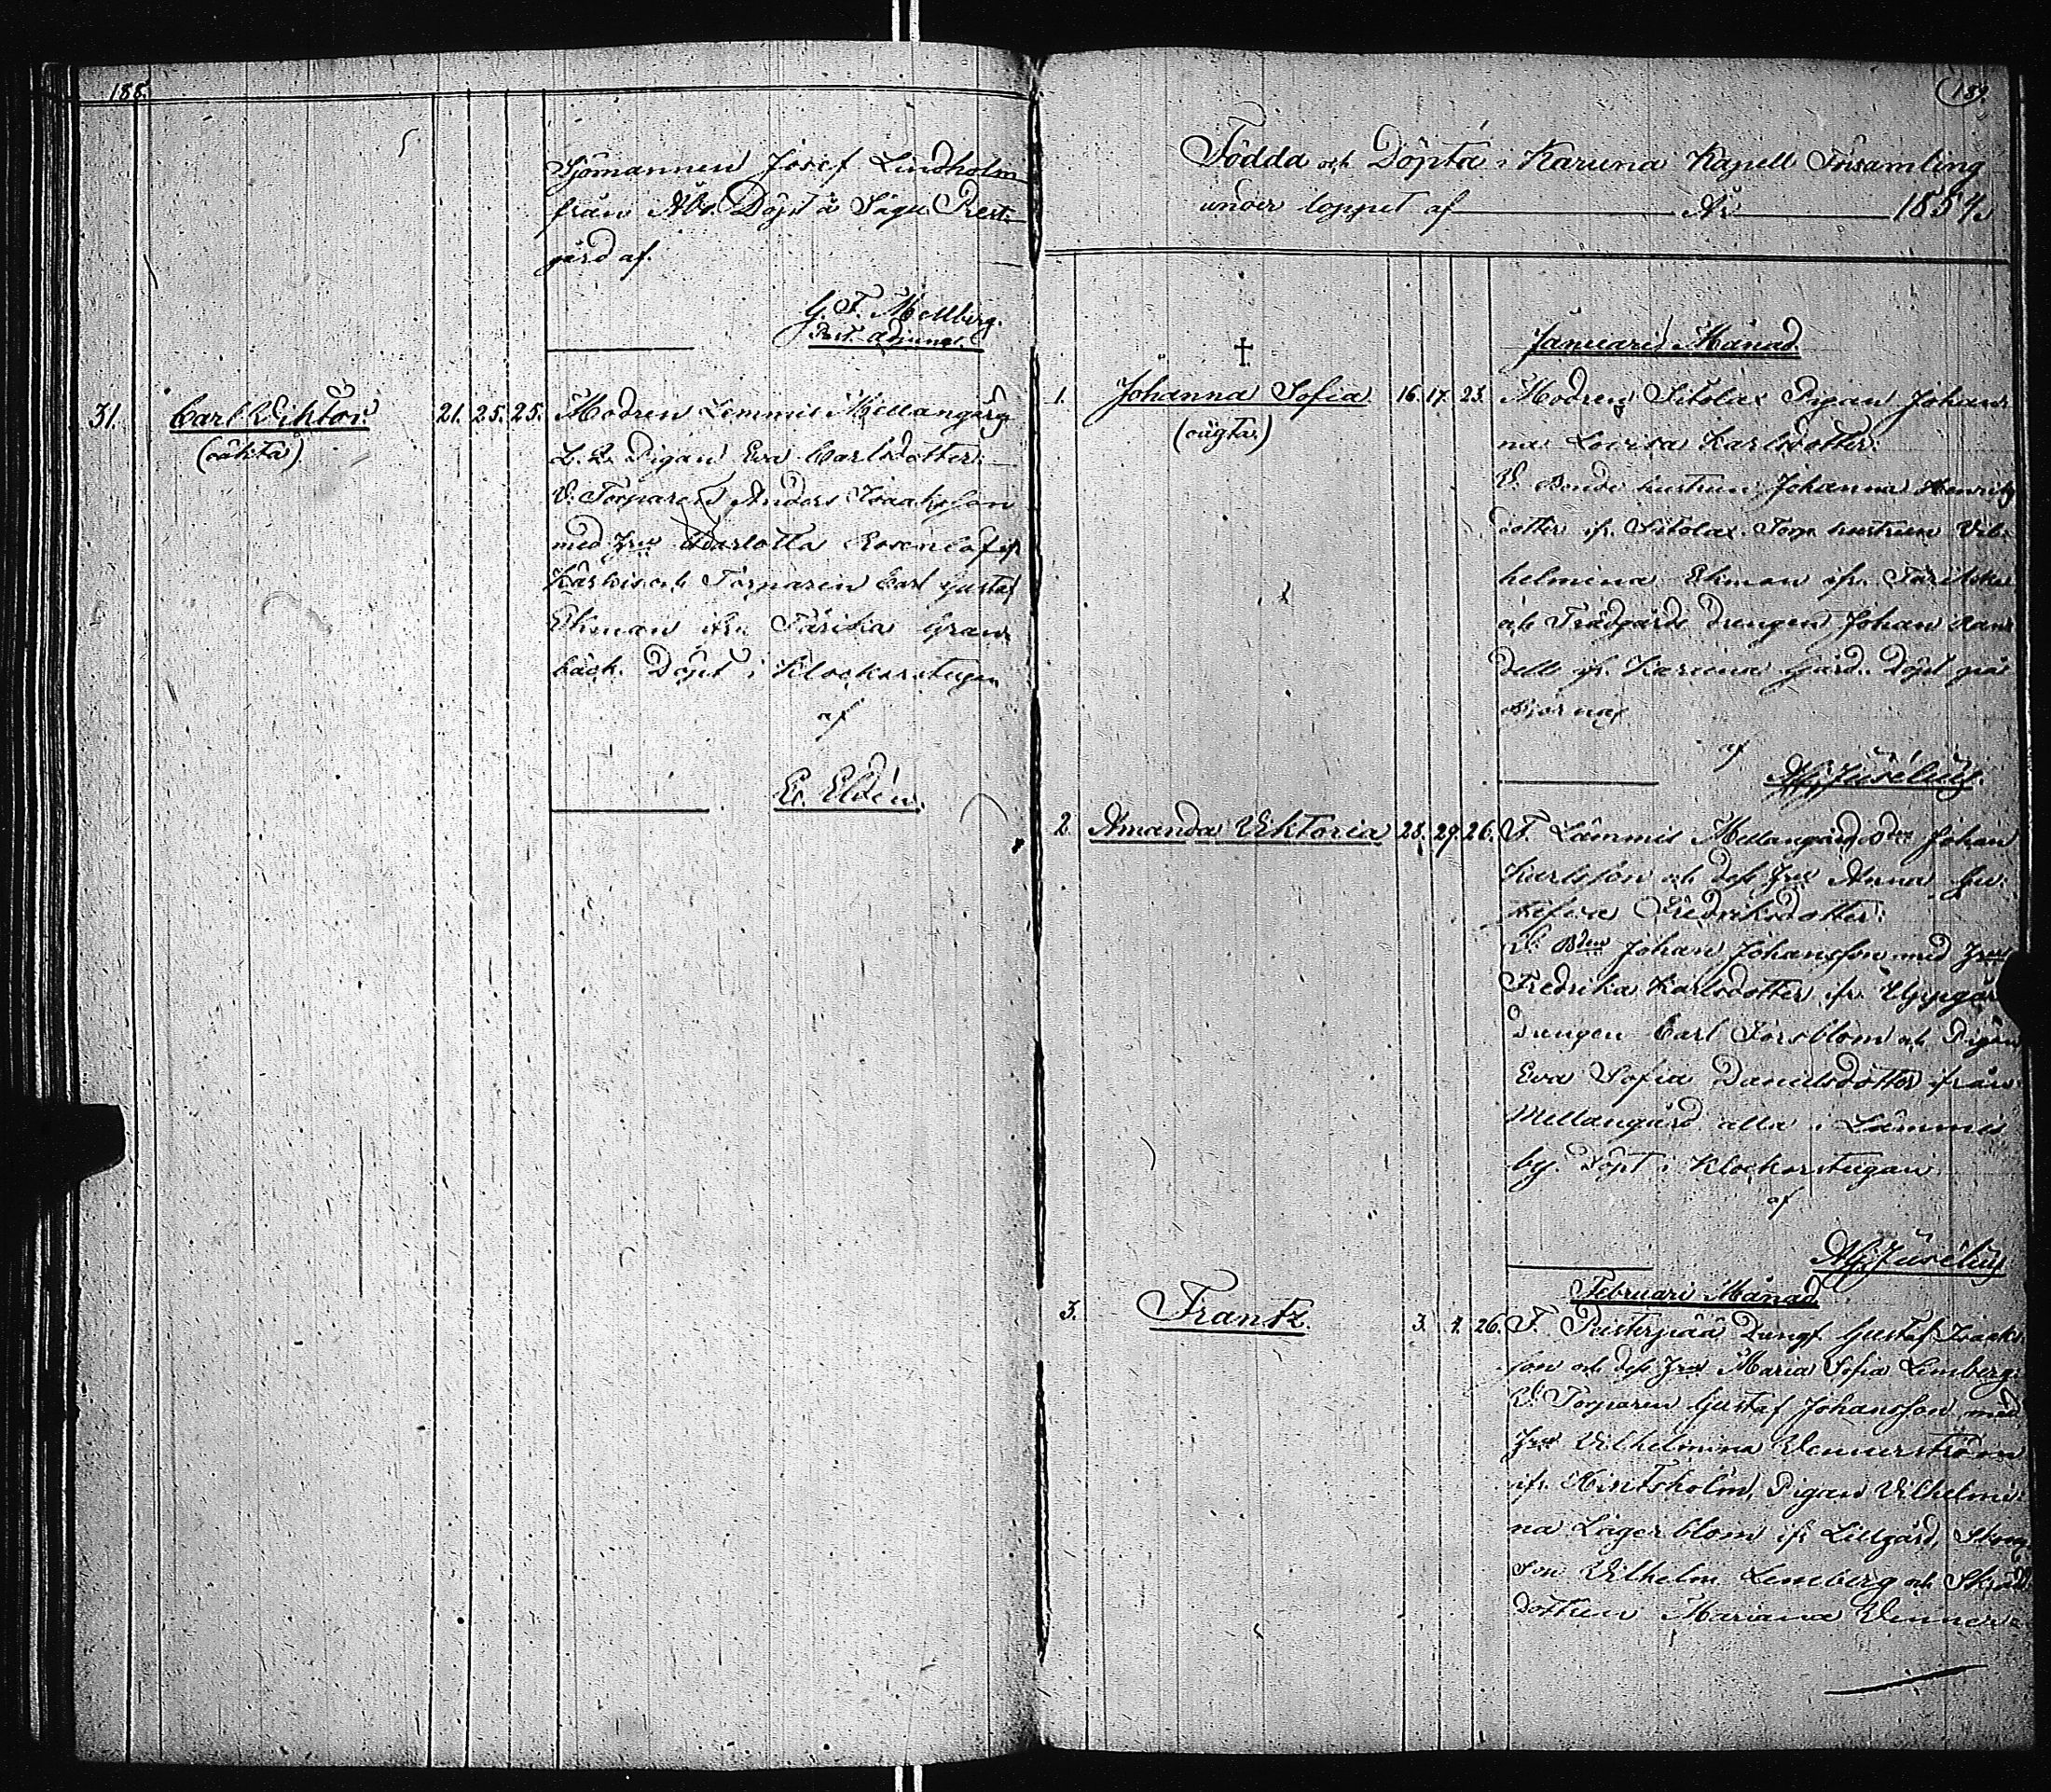 188.
Sjömannen Josef Lindholm
från Åbo. Döpt å Sagu Prest-
gård af.
G. F. Mellberg.
Past. Adjunct.
31. Carl Viktor. 21. 25. 25. Modren Lemmis Mellangårg
(oäkta) Pigan Eva Carlsdotter:
V. Torparen Anders Isaksson
med Hru Charlotta Rosenlöf ifr
Kärkis och Torparen Carl Gustaf
Ekman ifrn Täriska Gran-
back. Döpt i Klockarstugan
af
E. Eldén.
189.
Födda och Döpta i Karuna Kapell Församling
under loppet af År 1854.
Januari Månad.
1. Johanna Sofia 16. 17. 23. Modren Sitolax Pigan Johan-
(oägta.) na Lovisa Karlsdotter:
V. Bonde hustrun Johanna Henriks
dotter ifr. Sitolax. Torp hustrun Vil-
helmina Ekman ifr.
och Trädgårds drengen Johan
ifr. Karuna Gård. Döpt på
Björnax
af
2. Amanda Viktoria 28. 29. 26. F. Lämmis Mellangård Bden Johan
Karlsson och dess Hru Anna
Fredriksdotter:
V. Bden Johan Johansson med Hru
Fredrika Karlsdotter ifr. Uppgård
Drengen Carl Forsblom och Pigan
Eva Sofia Danielsdotter ifrån
Mellangård alla i Lämmis
by. Döpt i Klockarstugan
af
Februari Månad
3. Frantz. 3. 4. 26. F. Drengf. Gustaf Isaaks-
son och dess Hru Maria Sofia Lemberg:
V. Torparen Gustaf Johansson med
Hru Vilhelmina Vennerström
ifr. Kintsholm, Pigan Vilhelmi-
na Lagerblom ifr Lillgård,
son Vilhelm Lemberg och Skräd
dottren Mariana Venner-